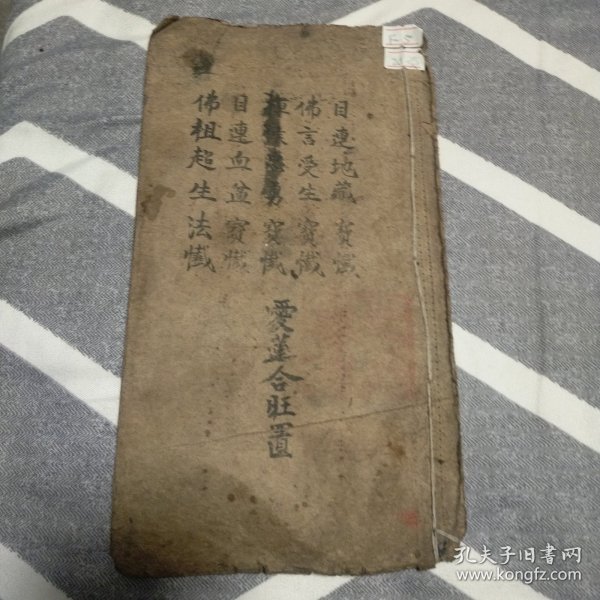 目連地藏寶懺
佛言受生寶懺
寶懺
目連血盆寶懺
佛祖超生法懺
愛蓮合旺置
孔夫子旧书网
www.kongfz.com